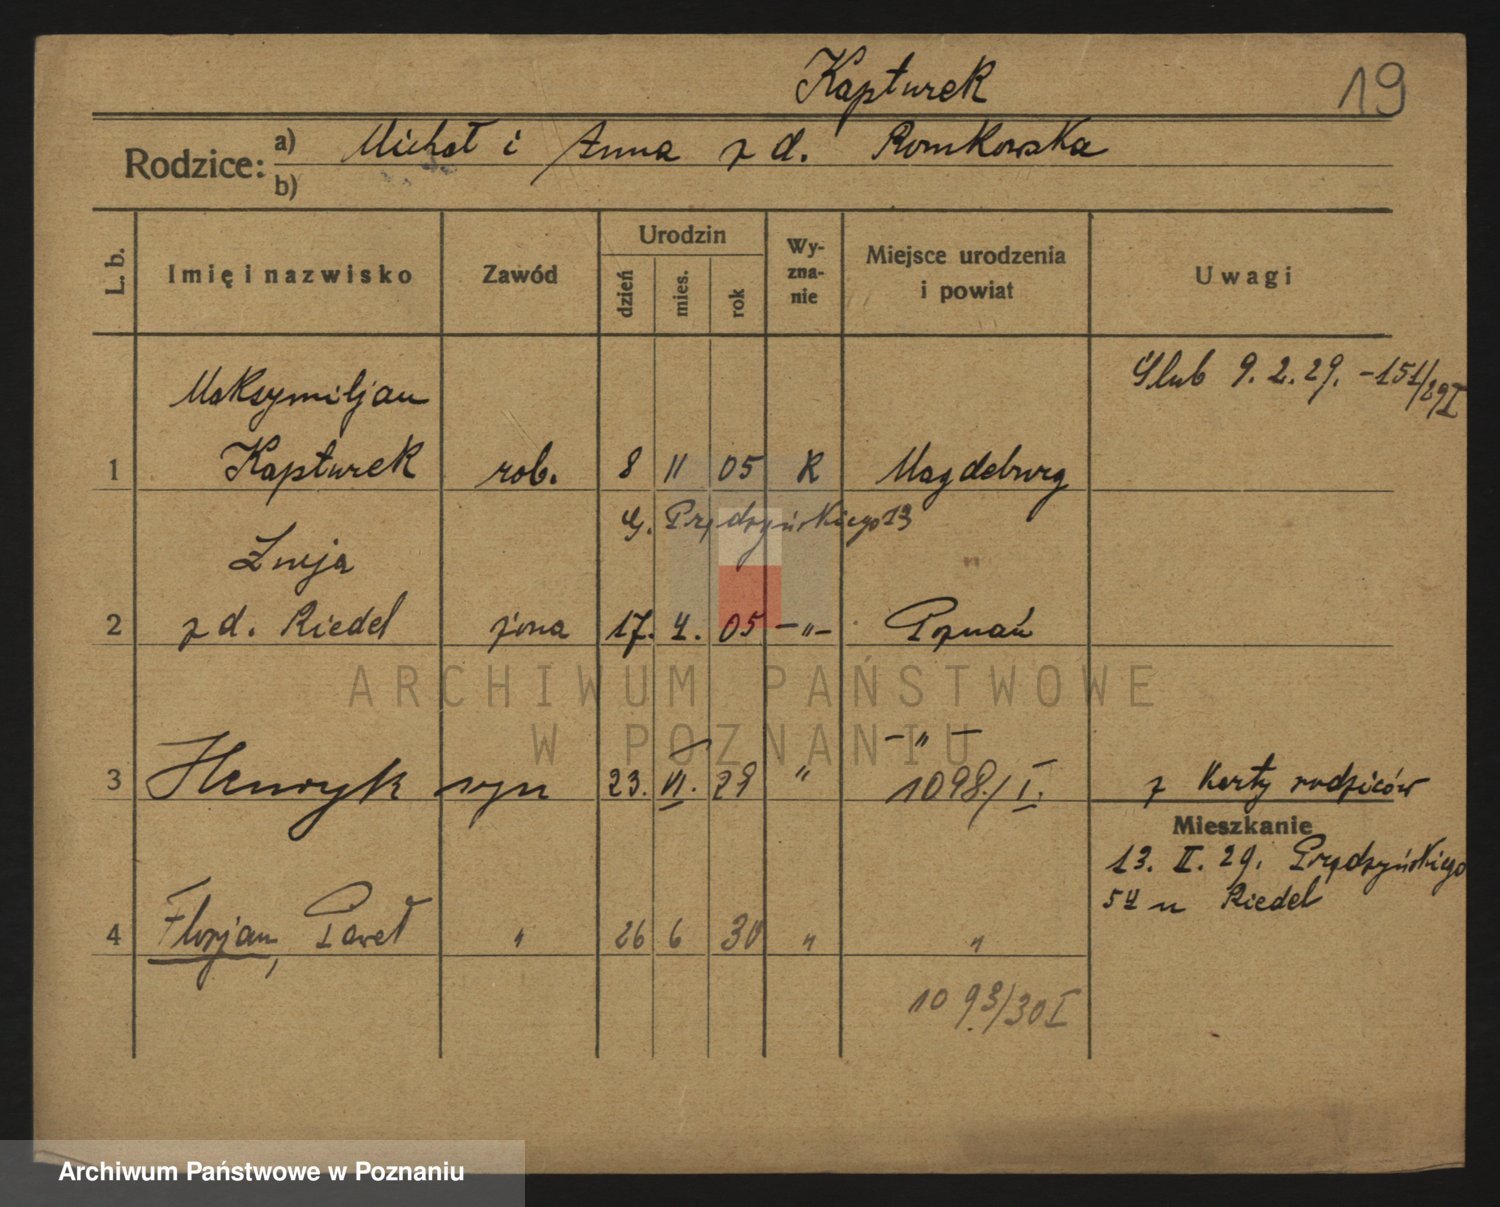 Kapturek
19
Rodzice:
a) Michał i Anna z d. Romkowska
b)
L. b.
Imię i nazwisko
Zawód
Urodzin
dzień
mies.
rok
Wy-
zna-
nie
Miejsce urodzenia
i powiat
Uwagi
Maksymiljan
Ślub 9. 2. 29. - 151/29 I
1 Kapturek rob. 8 11 05 R Magdeburg
G. Prądzyńskiego 13
Łucja
2 z d. Riedel żona 17. 4. 05 - " - Poznań
ARCHIWUM PAŃSTWOWE
W POZNANIU
- " -
3 Henryk syn 23. VI. 29 " 1098/I. z karty rodziców
Mieszkanie
13. II. 29. Prądzyńskiego
54 u Riedel
4 Florjan, Paweł " 26 6 30 " "
1093/30 I
Archiwum Państwowe w Poznaniu